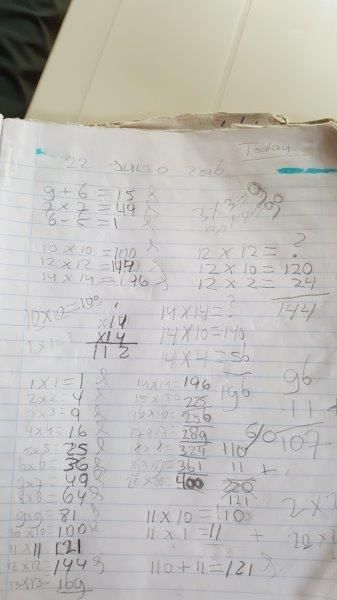 Today
22 JULIO 2016
9 + 6 = 15
7 x 7 = 49
6 - 5 = 1
10 x 10 = 100
12 x 12 = 144
14 x 14 = 196
12 x 12 = ?
12 x 10 = 120
12 x 2 = 24
144
14
x14
112
14 x 14 = ?
14 x 10 = 140
14 x 4 = 56
196
1 x 1 = 1
2 x 2 = 4
3 x 3 = 9
4 x 4 = 16
5 x 5 = 25
6 x 6 = 36
7 x 7 = 49
8 x 8 = 64
9 x 9 = 81
10 x 10 = 100
11 x 11 121
12 x 12 = 144
13 x 13 = 169
14 x 14 = 196
15 x 15 = 225
16 x 16 = 256
17 x 17 = 289
18 x 18 = 324
19 x 19 = 361
20 x 20 = 400
96
11 +
107
110
11 +
121
11 x 10 = 110
11 x 1 = 11 +
110 + 11 = 121